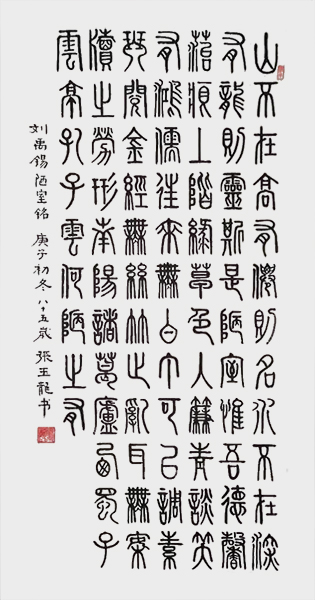 山不在高有僊則名水不在深
有龍則靈斯是陋室惟吾德馨
苔痕上階綠草色入簾青談笑
有鴻儒往來無白丁可以調素
琴閱金經無絲竹之亂耳無案
牘之勞形南陽諸葛廬西蜀子
雲亭孔子雲何陋之有
刘禹錫陋室銘 庚子初冬八十五歲 張玉龍书